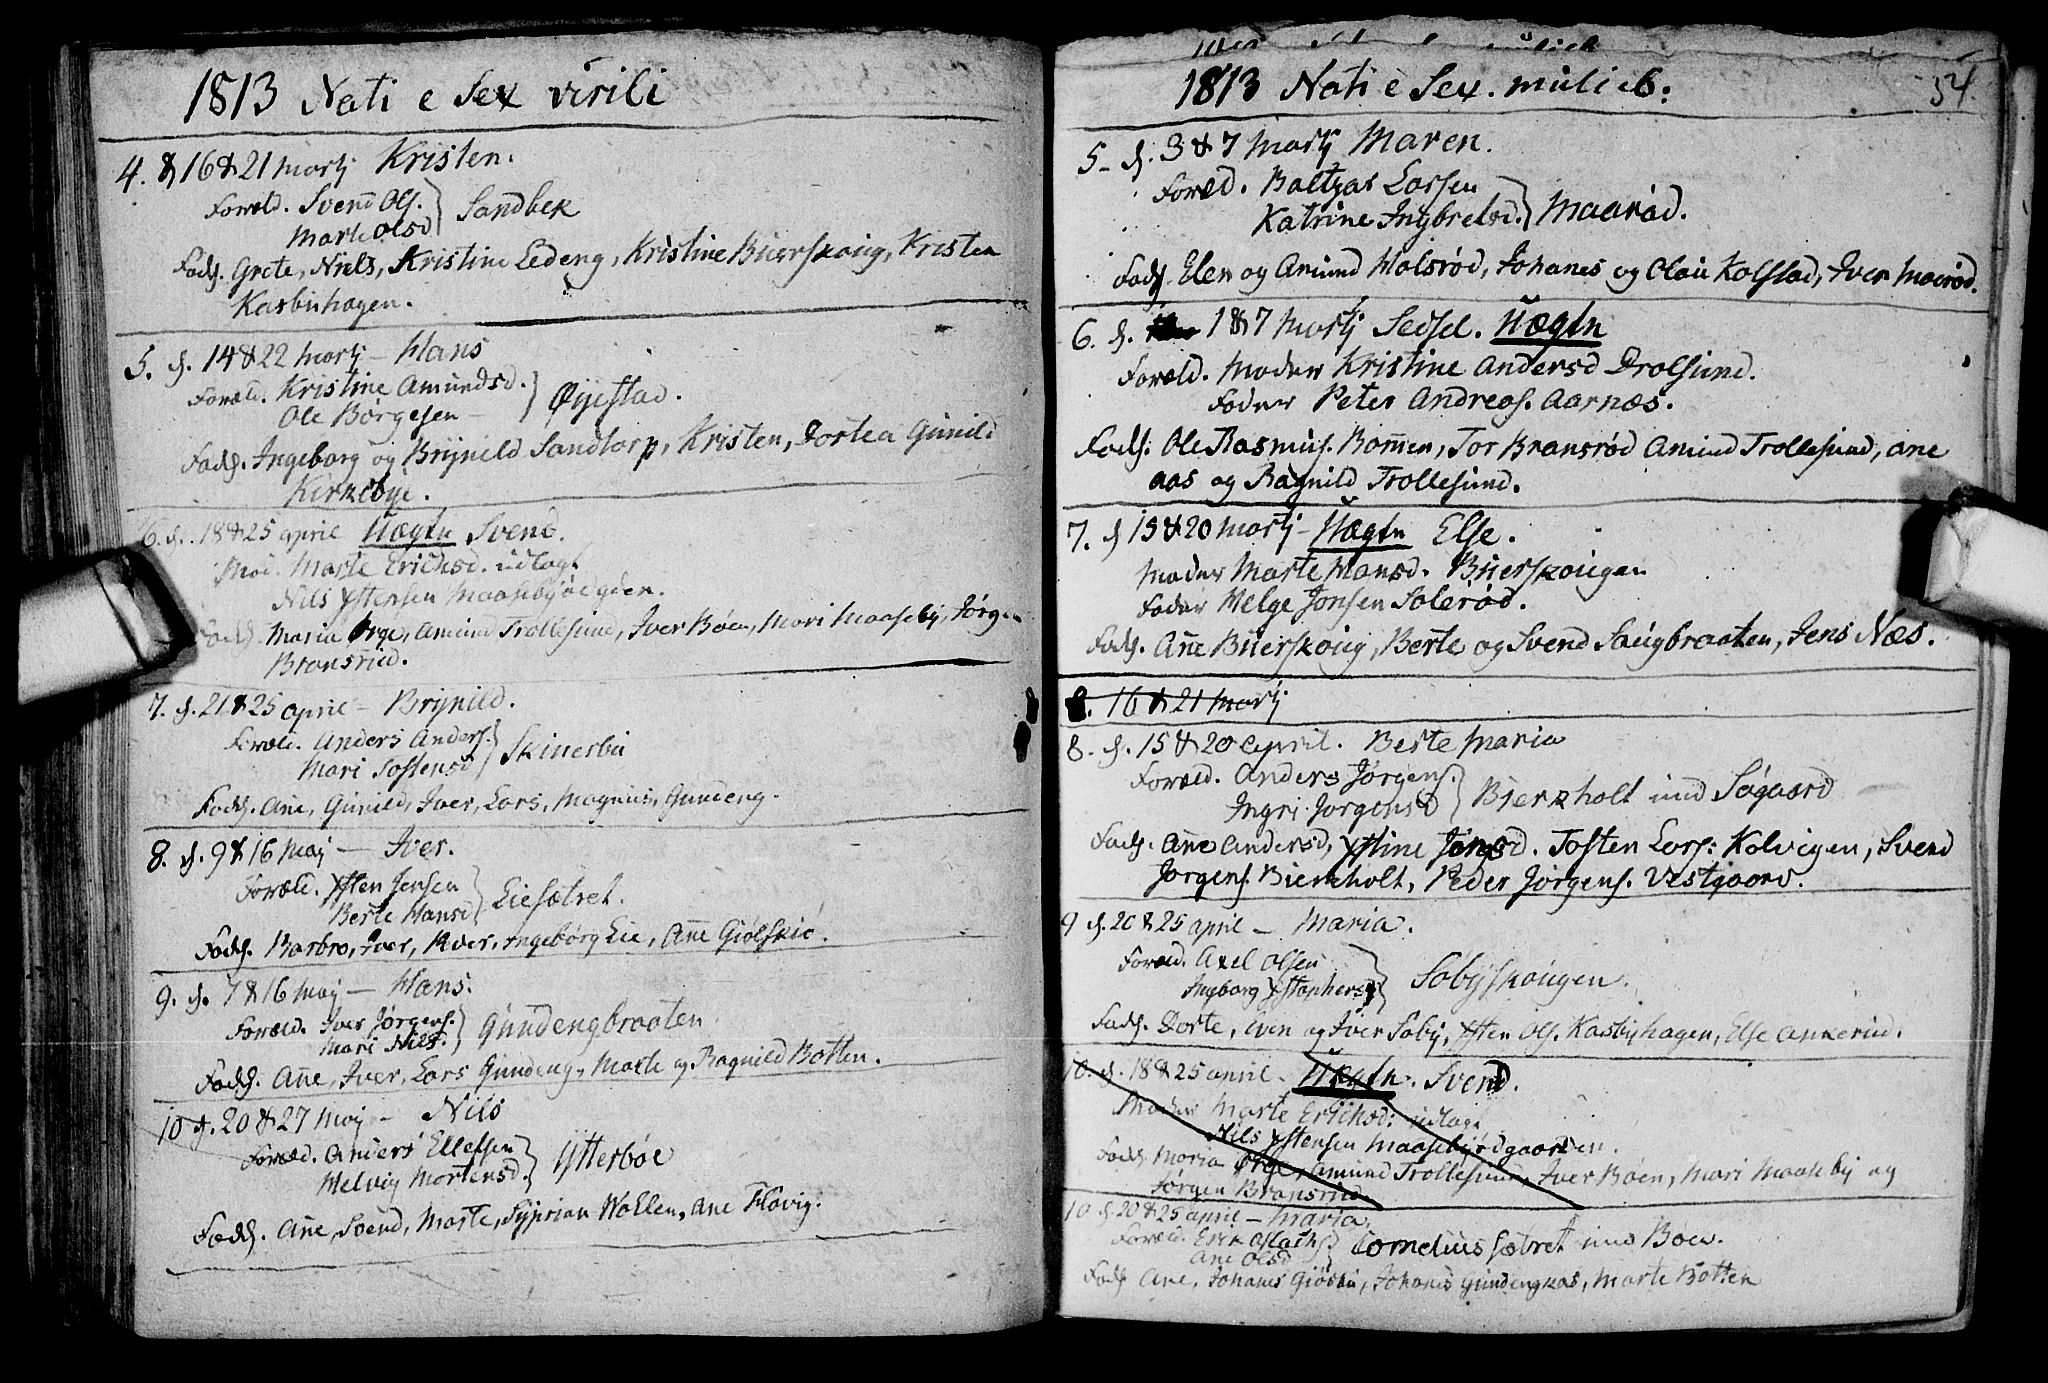 1813 Nati e Sex virili
4. d. 16 & 21 Martj Kristen.
Foræld. Svend Ols.
Marte Olsd } Sandbek
Fadd. Grete, Niels, Kristine Eedeng, Kristine Buerskoug, Kristen
Kasbuhagen.
5. d. 14 & 22 Martj – Hans
Foræld. Kristine Amundsd.
Ole Børgesen – } Øyestad.
Fadd. Ingeborg og Brynild Sandtorp, Kristen, Dortea Gunild
Kirkebye.
6. d. 18 & 25 april Uægtn Svend.
Mod. Marte Erichsd. udlagt
Nils Ystensen Maasebyødgden.
Fadd. Maria Ørge, Amund Trollesund, Iver Bøen, Mari Maaseby, Jørgen
Bransrud.
7. d. 21 & 25 april – Brynild.
Foræld. Anders Anders.
Mari Tostensd } Skinerbu
Fadd. Ane, Gunild, Iver, Lars, Magnus, Gundeng.
8. d. 9 & 16 Maj – Iver.
Foræld. Ysten Jensen
Berte Hansd } Liesætret.
Fadd. Barbro, Iver, Iver, Ingeborg Lie, Ane Giølskiø.
9. d. 7 & 16 Maj – Hans.
Foræld. Iver Jørgens.
Mari Nils. } Gundengbraaten
Fadd. Ane, Iver, Lars Gundeng, Marte og Ragnild Botten.
10 d. 20 & 27 Maj – Nils
Foræld. Anders Ellefsen
Helvig Mortensd. } Ytterbøe
Fadd. Ane, Svend, Marte, Syprian Wollen, Ane Floxvig.
1813 Nati e Sex. mulieb: 54.
5 – d. 3 & 7 Martj Maren.
Foræld. Baltzar Larsen
Katrine Ingbretsd. } Maarød.
Fadd. Elen og Amund Holsrød, Johanes og Olau Kolstad, Iver Maarød.
6. d. 1 & 7 Martj Sedsel. Uægtn
Foræld. Moder Kristine Andersd Drolsund.
Foder Peter Andreas. Aarnæs.
Fadd. Ole Rasmus. Bommen, Tor Bransrød Amund Trollesund, Ane
Aas og Ragnild Trollesund.
7. d 15 & 20 Martj – Uægtn Else.
Moder Marte Hansd. Buerskougen
Foder Helge Jonsen Solerød.
Fadd. Ane Buerskoug, Berte og Svend Saugbraaten, Jens Næs.
8. 16 & 21 Martj
8. d. 15 & 20 april. Berte Maria
Foræld. Anders Jørgens.
Ingri Jorgensd } Bierkholt und Søgaard
Fadd. Ane Andersd, Ystine Jensd. Tosten Lars: Kolvigen, Svend
Jørgens. Bierkholt, Peder Jørgens. Vestgaard.
9 d. 20 & 25 april – Maria.
Foræld. Axel Olsen
Ingborg Ystophersd } Sobyskougen.
Fadd. Dorte, Even og Iver Soby, Ysten Ols. Kasbyhagen, Else Ankerud.
10. d. 18 & 25 april – Uægtn. Svend.
Moder Marte Erichsd: udlagt
Nils Ystensen Maasebyødgaarden.
Fadd. Maria Ørge, Amund Trollesund, Iver Bøen, Mari Maaseby og
Jørgen Bransrud
10 d. 20 & 25 april – Maria.
Foræld. Erik Oslachs.
Ane Olsd } Cornelius sætret und Bøen.
Fadd Ane, Johanes Giøsbu, Johanes Gundengkas, Marte Botten